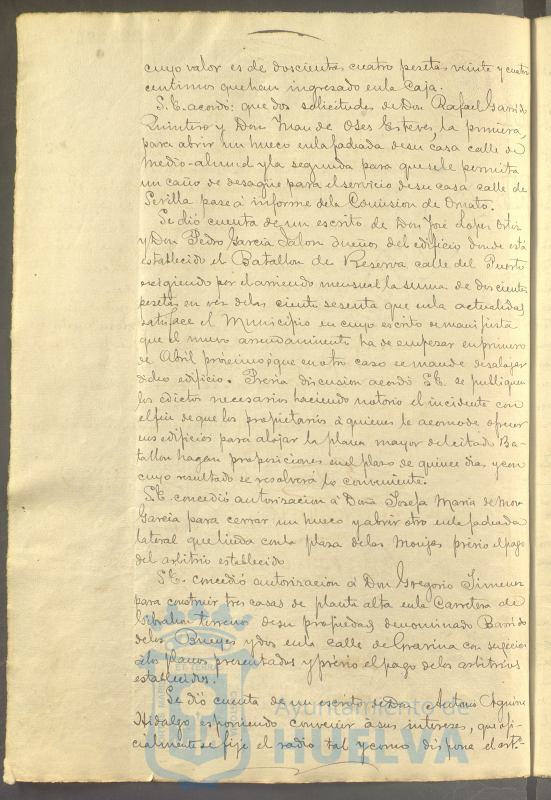 cuyo valor es de doscientas cuatro pesetas veinte y cuatro
centimos que han ingresado en la Caja.
S. E. acordó: que dos solicitudes de Don Rafael Garrido
Quintero y Don Juan de Oses Esteves, la primera,
para abrir un hueco en la fachada de su casa calle de
Medio-almud y la segunda para que se le permita
un caño de desagüe para el servicio de su casa calle de
Sevilla pase á informe de la Comision de Ornato.
Se dió cuenta de un escrito de Don José Lopez Ortiz
y Don Pedro Garcia Jalon dueños del edificio donde está
establecido el Batallon de Reserva calle del Puerto
exigiendo por el arriendo mensual la suma de doscientas
pesetas en vez de las ciento sesenta que en la actualidad
satisface el Municipio en cuyo escrito se manifiesta
que el nuevo arrendamiento ha de empezar en primero
de Abril proximo; que en otro caso se mande desalojar
dicho edificio. Previa discusion acordó S. E. se publiquen
los edictos necesarios haciendo notorio el incidente con
el fin de que los propietarios á quienes le acomode ofrecer
sus edificios para alojar la plana mayor del citado Ba-
tallon hagan proposiciones en el plazo de quince dias, y con
cuyo resultado se resolverá lo conveniente.
S. E. concedió autorizacion á Doña Josefa Maria de Mora
Garcia para cerrar un hueco y abrir otro en la fachada
lateral que linda con la plaza de las Monjas prévio el pago
del arbitrio establecido
S. E. concedió autorizacion á Don Gregorio Jimenez
para construir tres casas de planta alta en la Carretera de
Gibraleon terreno de su propiedad denominado Barrido
de los Bueyes y dos en la calle de Gravina con sugecion
á los planos presentados y prévio el pago de los arbitrios
establecidos.
Se dió cuenta de un escrito de Don Antonio
Hidalgo esponiendo convenir á sus intereses, que ofi-
cialmente se fije el radio tal y como dispone el artº
Ayuntamiento de
HUELVA